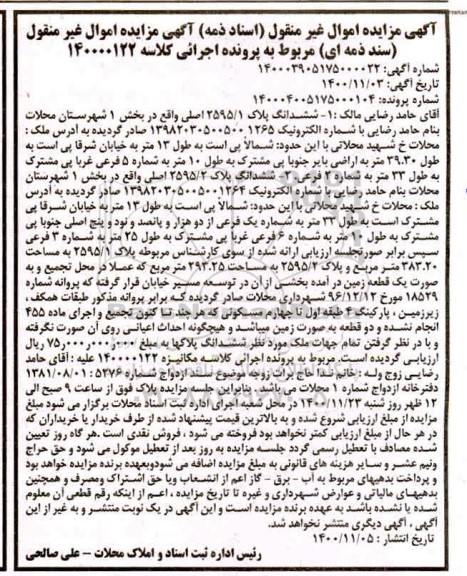 آگهی مزایده اموال غیر منقول (اسناد ذمه) آگهی مزایده اموال غیر منقول
(سند ذمه ای) مربوط به پرونده اجرائی کلاسه ۱۴۰۰۰۰۱۲۲
شماره آگهی: ۱۴۰۰۰۳۹۰۵۱۷۵۰۰۰۰۲۲
تاریخ آگهی: ۱۴۰۰/۱۱/۰۳
شماره پرونده: ۱۴۰۰۰۴۰۰۵۱۷۵۰۰۰۱۰۴
آقای حامد رضایی مالک :۱- ششدانگ پلاک ۲۵۹۵/۱ اصلی واقع در بخش ۱ شهرستان محلات
بنام حامد رضایی با شماره الکترونیک ۱۳۹۸۲۰۳۰۵۰۰۵۰۰ ۱۲۶۵ صادر گردیده به آدرس ملک :
محلات خ شهید محلاتی با این حدود: شمالاً پی است به طول ۱۳ متر به خیابان شرقا پی است به
طول ۳۹.۳۰ متر به اراضی بایر جنوبا پی مشترک به طول ۱۰ متر به شماره ۵ فرعی غربا پی مشترک
به طول ۳۳ متر به شماره ۲ فرعی ۲- ششدانگ پلاک ۲۵۹۵/۲ اصلی واقع در بخش ۱ شهرستان
محلات بنام حامد رضایی با شماره الکترونیک ۱۳۹۸۲۰۳۰۵۰۰۵۰۰۱۲۶۴ صادر گردیده به آدرس
ملک : محلات خ شهید محلاتی با این حدود: شمالاً پی است به طول ۱۳ متر به خیابان شرقا پی
مشترک است به طول ۳۳ متر به شماره یک فرعی از دو هزار و پانصد و نود و پنج اصلی جنوبا پی
مشترک به طول ۱۰ متر به شماره ۶ فرعی غربا پی مشترک به طول ۲۵ متر به شماره ۳ فرعی
سپس برابر صورتجلسه ارزیابی ارائه شده از سوی کارشناس مربوطه پلاک ۲۵۹۵/۱ به مساحت
۳۸۳.۲۰ متر مربع و پلاک ۲۵۹۵/۲ به مساحت ۲۹۳.۲۵ متر مربع که عملا در محل تجمیع و به
صورت یک قطعه زمین در آمده بخشی از آن در توسعه مسیر خیابان قرار گرفته که پروانه شماره
۱۸۵۲۹ مورخ ۹۶/۱۲/۱۲ شهرداری محلات صادر گردیده که برابر پروانه مذکور طبقات همکف ،
زیرزمین ، پارکینگ ، طبقه اول تا چهارم مسکونی که هر چند تا کنون تجمیع و اجرای ماده ۴۵۵
انجام نشده و دو قطعه به صورت زمین میباشد و هیچگونه احداث اعیانی روی آن صورت نگرفته
و با در نظر گرفتن تمام جهات ملک مورد نظر ششدانگ پلاکها به مبلغ ۷۵ر۰۰۰ر۰۰۰ر۰۰۰ ریال
ارزیابی گردیده است. مربوط به پرونده اجرائی کلاسه مکانیزه ۱۴۰۰۰۰۱۲۲ علیه : آقای حامد
رضایی زوج وله : خانم ندا آج برات زوجه موضوع سند ازدواج شماره ۵۲۷۶ : ۱۳۸۱/۰۸/۰۱
دفترخانه ازدواج شماره ۱ محلات می باشد . بنابراین جلسه مزایده پلاک فوق از ساعت ۹ صبح الی
۱۲ ظهر روز شنبه ۱۴۰۰/۱۱/۲۳ در محل شعبه اجرای اداره ثبت اسناد محلات برگزار می شود مبلغ
مزایده از مبلغ ارزیابی شروع شده و به بالاترین قیمت پیشنهاد شده از طرف خریدار یا خریداران که
در هر حال از مبلغ ارزیابی کمتر نخواهد بود فروخته می شود ، فروش نقدی است .هر گاه روز تعیین
شده مصادف با تعطیل رسمی گردد جلسه مزایده به روز بعد از تعطیل موکول می شود و حق حراج
ونیم عشر و سایر هزینه های قانونی به مبلغ مزایده اضافه می شودوبعهده برنده مزایده خواهد بود
و پرداخت بدهیهای مربوط به آب – برق – گاز اعم از انشعاب ویا حق اشتراک ومصرف و همچنین
بدهیهای مالیاتی و عوارض شهرداری و غیره تا تاریخ مزایده ، اعم از اینکه رقم قطعی آن معلوم
شده یا نشده باشد به عهده برنده مزایده است و این آگهی در یک نوبت منتشر و به غیر از این
آگهی ، آگهی دیگری منتشر نخواهد شد.
تاریخ انتشار : ۱۴۰۰/۱۱/۰۵
رئیس اداره ثبت اسناد و املاک محلات – علی صالحی